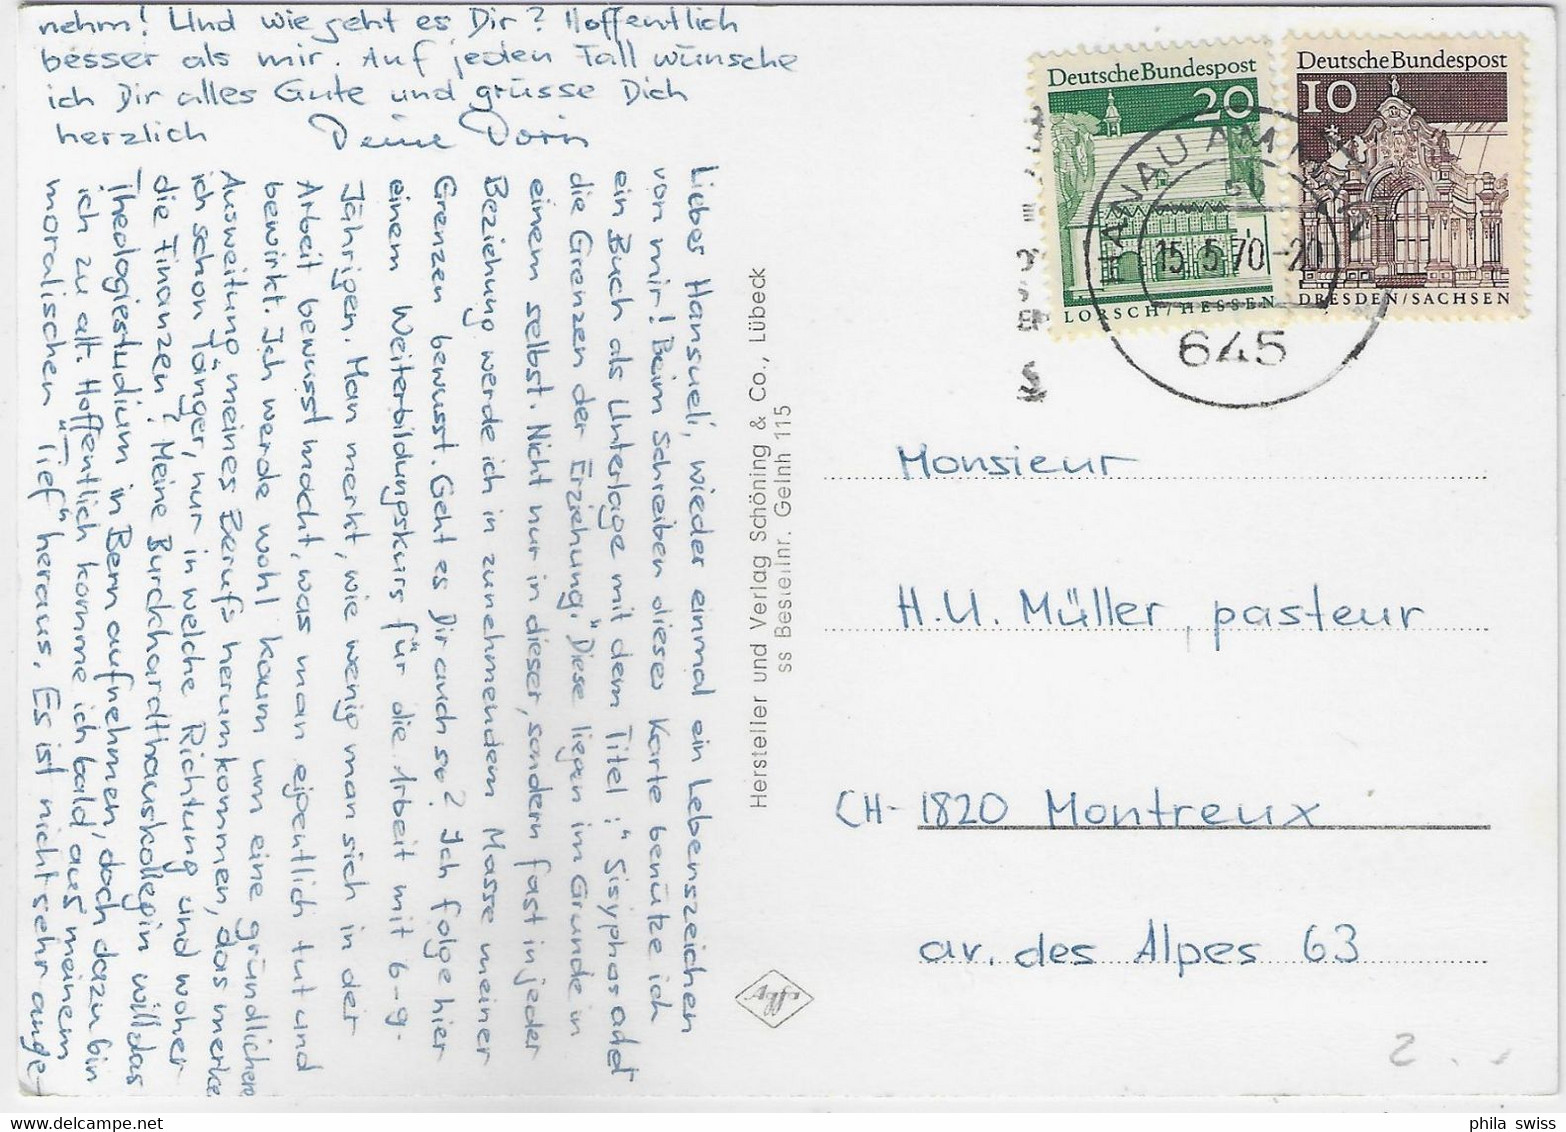 Lieber Hansueli, wieder einmal ein Lebenszeichen
von mir! Beim Schreiben dieser Karte benütze ich
ein Buch als Unterlage mit dem Titel: "Sisyphos oder
die Grenzen der Erziehung." Diese liegen im Grunde in
einem selbst. Nicht nur in dieser, sondern fast in jeder
Beziehung werde ich in zunehmendem Masse meiner
Grenzen bewusst. Geht es Dir auch so? Ich folge hier
einem Weiterbildungskurs für die Arbeit mit 6-9-
Jährigen. Man merkt, wie wenig man sich in der
Arbeit bewusst macht, was man eigentlich tut und
bewirkt. Ich werde wohl kaum um eine gründlichere
Ausweitung meines Berufs herumkommen, das merke
ich schon länger, nur in welche Richtung und woher
die Finanzen? Meine Burckhardthauskollegin will das
Theologiestudium in Bern aufnehmen, doch dazu bin
ich zu alt. Hoffentlich komme ich bald aus meinem
moralischen "Tief" heraus. Es ist nicht sehr ange-
nehm! Und wie geht es Dir? Hoffentlich
besser als mir. Auf jeden Fall wünsche
ich Dir alles Gute und grüsse Dich
herzlich Deine Dorin
Hersteller und Verlag Schöning & Co., Lübeck
ss Bestellnr. Gelnh 115
Agfa
Deutsche Bundespost
20
LORSCH/HESSEN
Deutsche Bundespost
10
DRESDEN/SACHSEN
HANAU AM MAIN
15.5.70-20
645
Monsieur
H.U. Müller, pasteur
CH-1820 Montreux
av. des Alpes 63
2
phila swiss